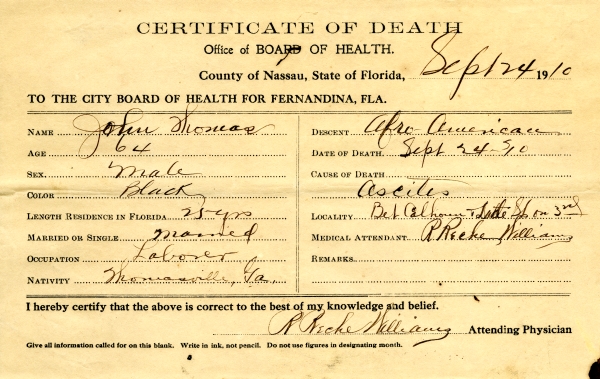 CERTIFICATE OF DEATH
Office of BOARD OF HEALTH.
County of Nassau, State of Florida, Sept 24 1910
TO THE CITY BOARD OF HEALTH FOR FERNANDINA, FLA.
NAME John Thomas
AGE 64
SEX. Male
COLOR Black
LENGTH RESIDENCE IN FLORIDA 25 yrs
MARRIED OR SINGLE Married
OCCUPATION Laborer
NATIVITY Thomasville, Ga.
DESCENT Afro-American
DATE OF DEATH Sept 24-10
CAUSE OF DEATH
Ascites
LOCALITY Bet Calhoun + on 3rd
MEDICAL ATTENDANT R Reche Williams
REMARKS
I hereby certify that the above is correct to the best of my knowledge and belief.
R Reche Williams Attending Physician
Give all information called for on this blank. Write in ink, not pencil. Do not use figures in designating month.